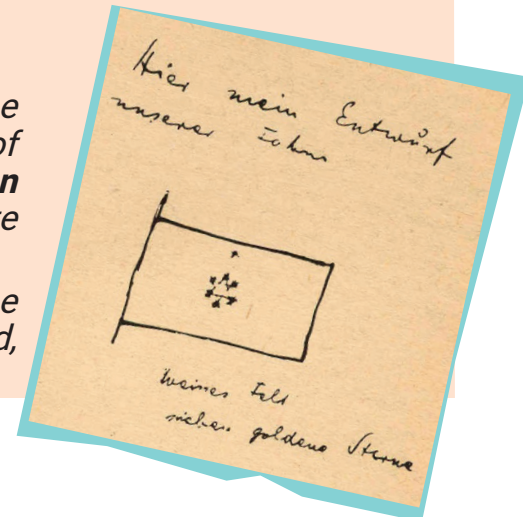 e
of
n
e
e
d,
Hier mein Entwurf
unserer Fahne
weisses Feld
sieben goldene Sterne